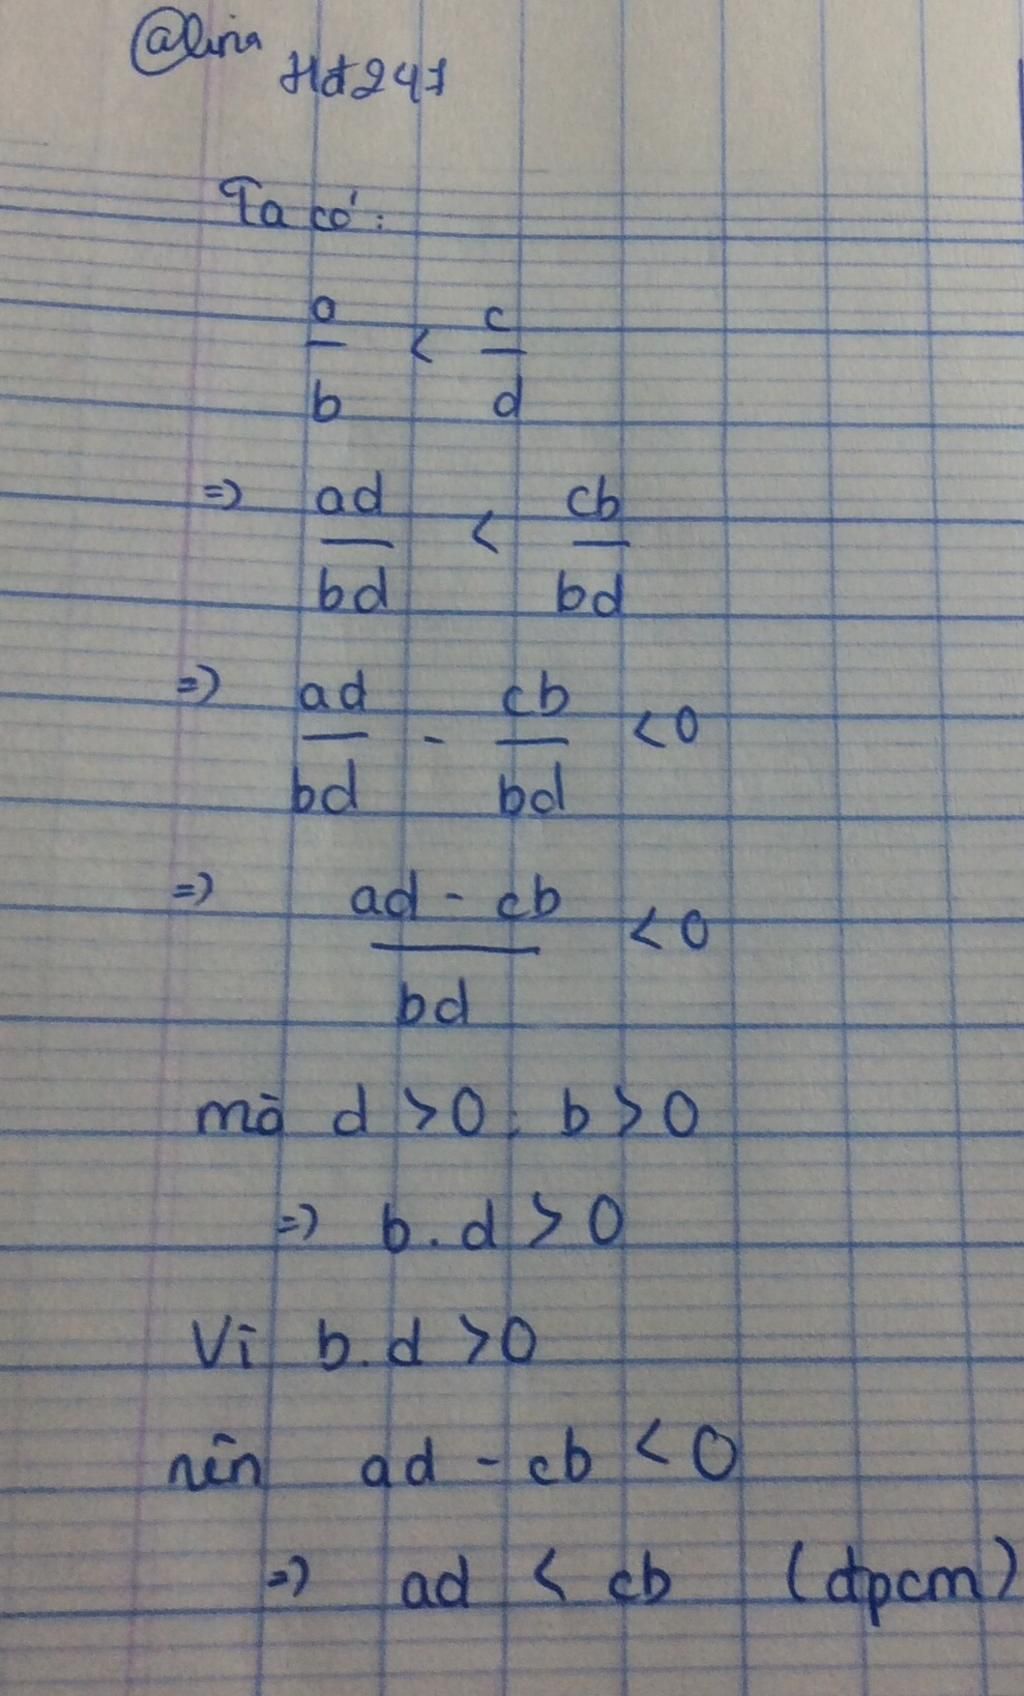 @lina
Hđ247
Ta có:
a/b < c/d
=> ad/bd < cb/bd
=> ad/bd - cb/bd < 0
=> ad - cb/bd < 0
mà d > 0; b > 0
=> b.d > 0
Vì b.d > 0
nên ad - cb < 0
=> ad < cb (đpcm)